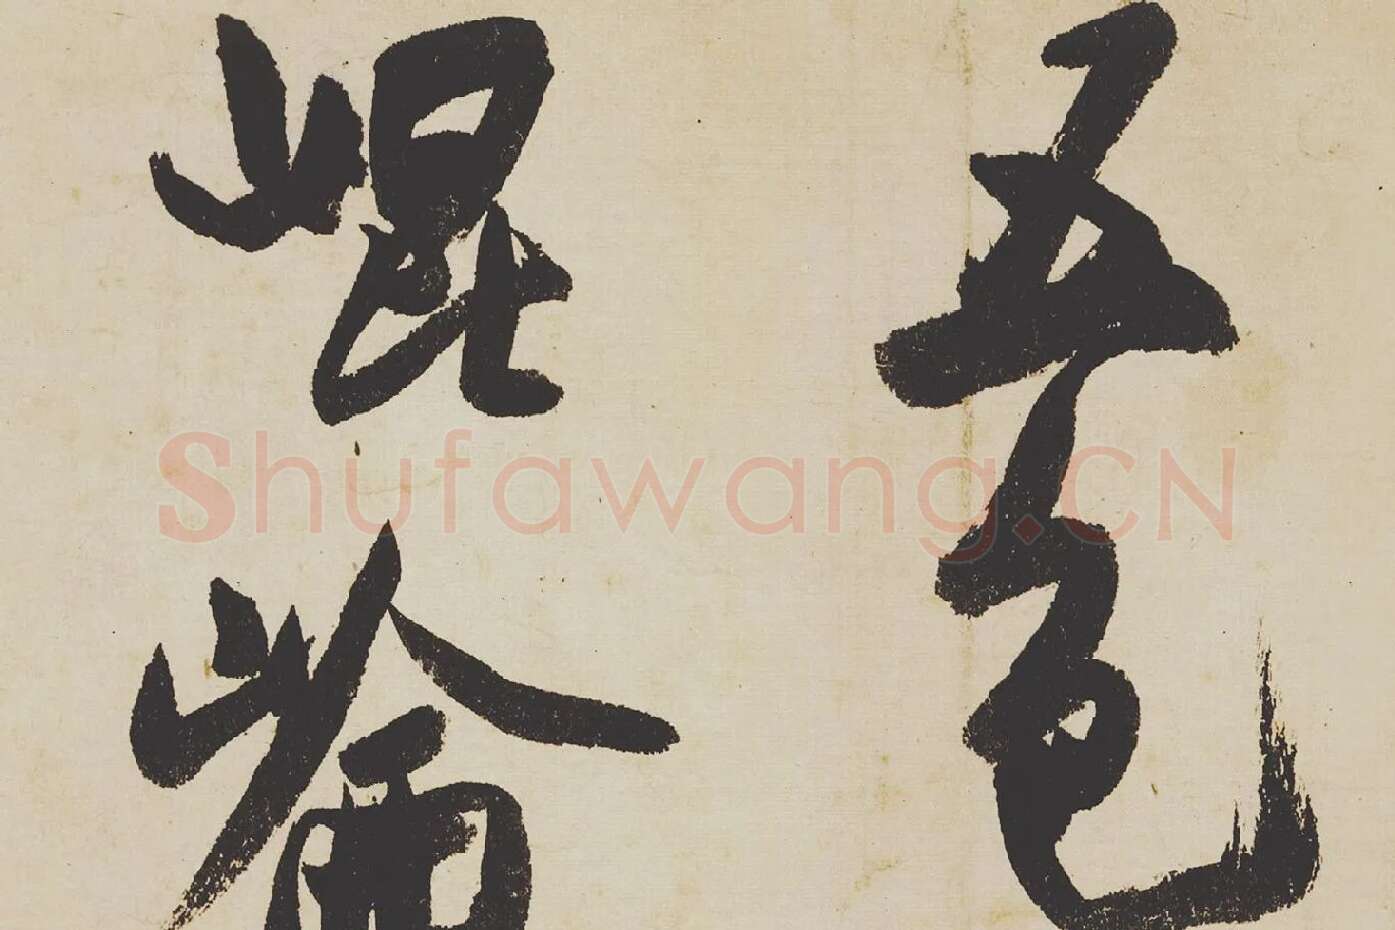 五色
崐崘
Shufawang.CN